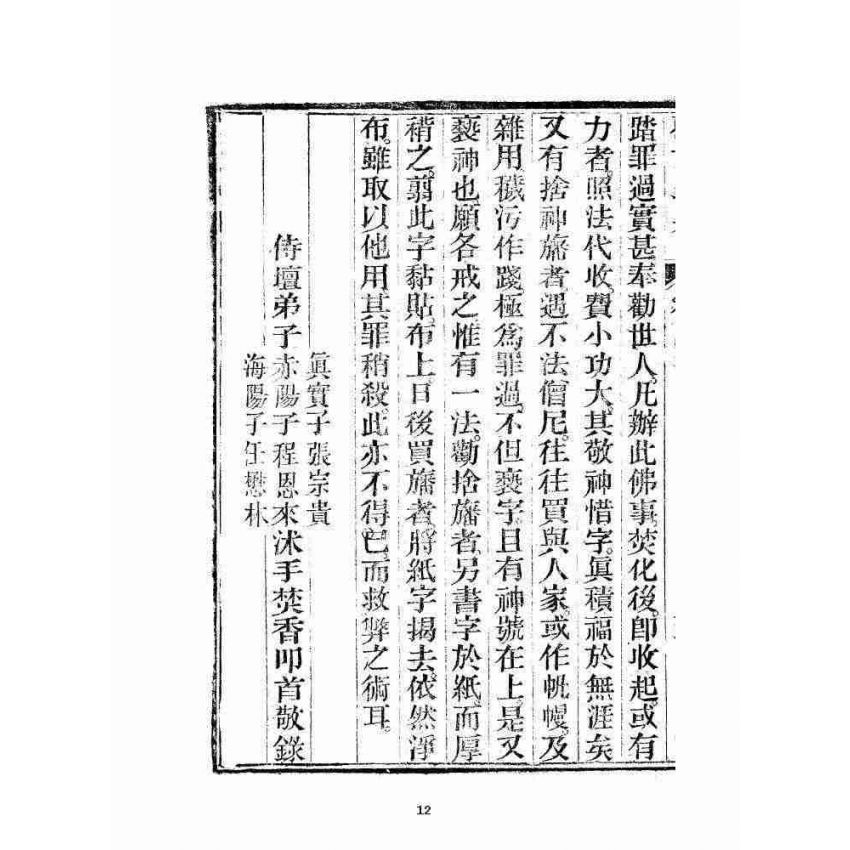 踏罪過實甚奉勸世人。凡辦此佛事。焚化後。卽收起。或有
力者。照法代收。費小功大。其敬神惜字。眞積福於無涯矣
又有捨神旛者。遇不法僧尼。往往買與人家。或作帆幔。及
雜用。穢污作踐。極爲罪過。不但褻字。且有神號在上。是又
褻神也。願各戒之。惟有一法。勸捨旛者。另書字於紙。而厚
褙之。翦此字黏貼。布上。日後買旛者。將紙字揭去。依然淨
布。雖取以他用。其罪稍殺。此亦不得已。而救弊之術耳。
眞實子張宗貴
侍壇弟子赤陽子程恩來沐手焚香叩首敬錄
海陽子任懋林
12